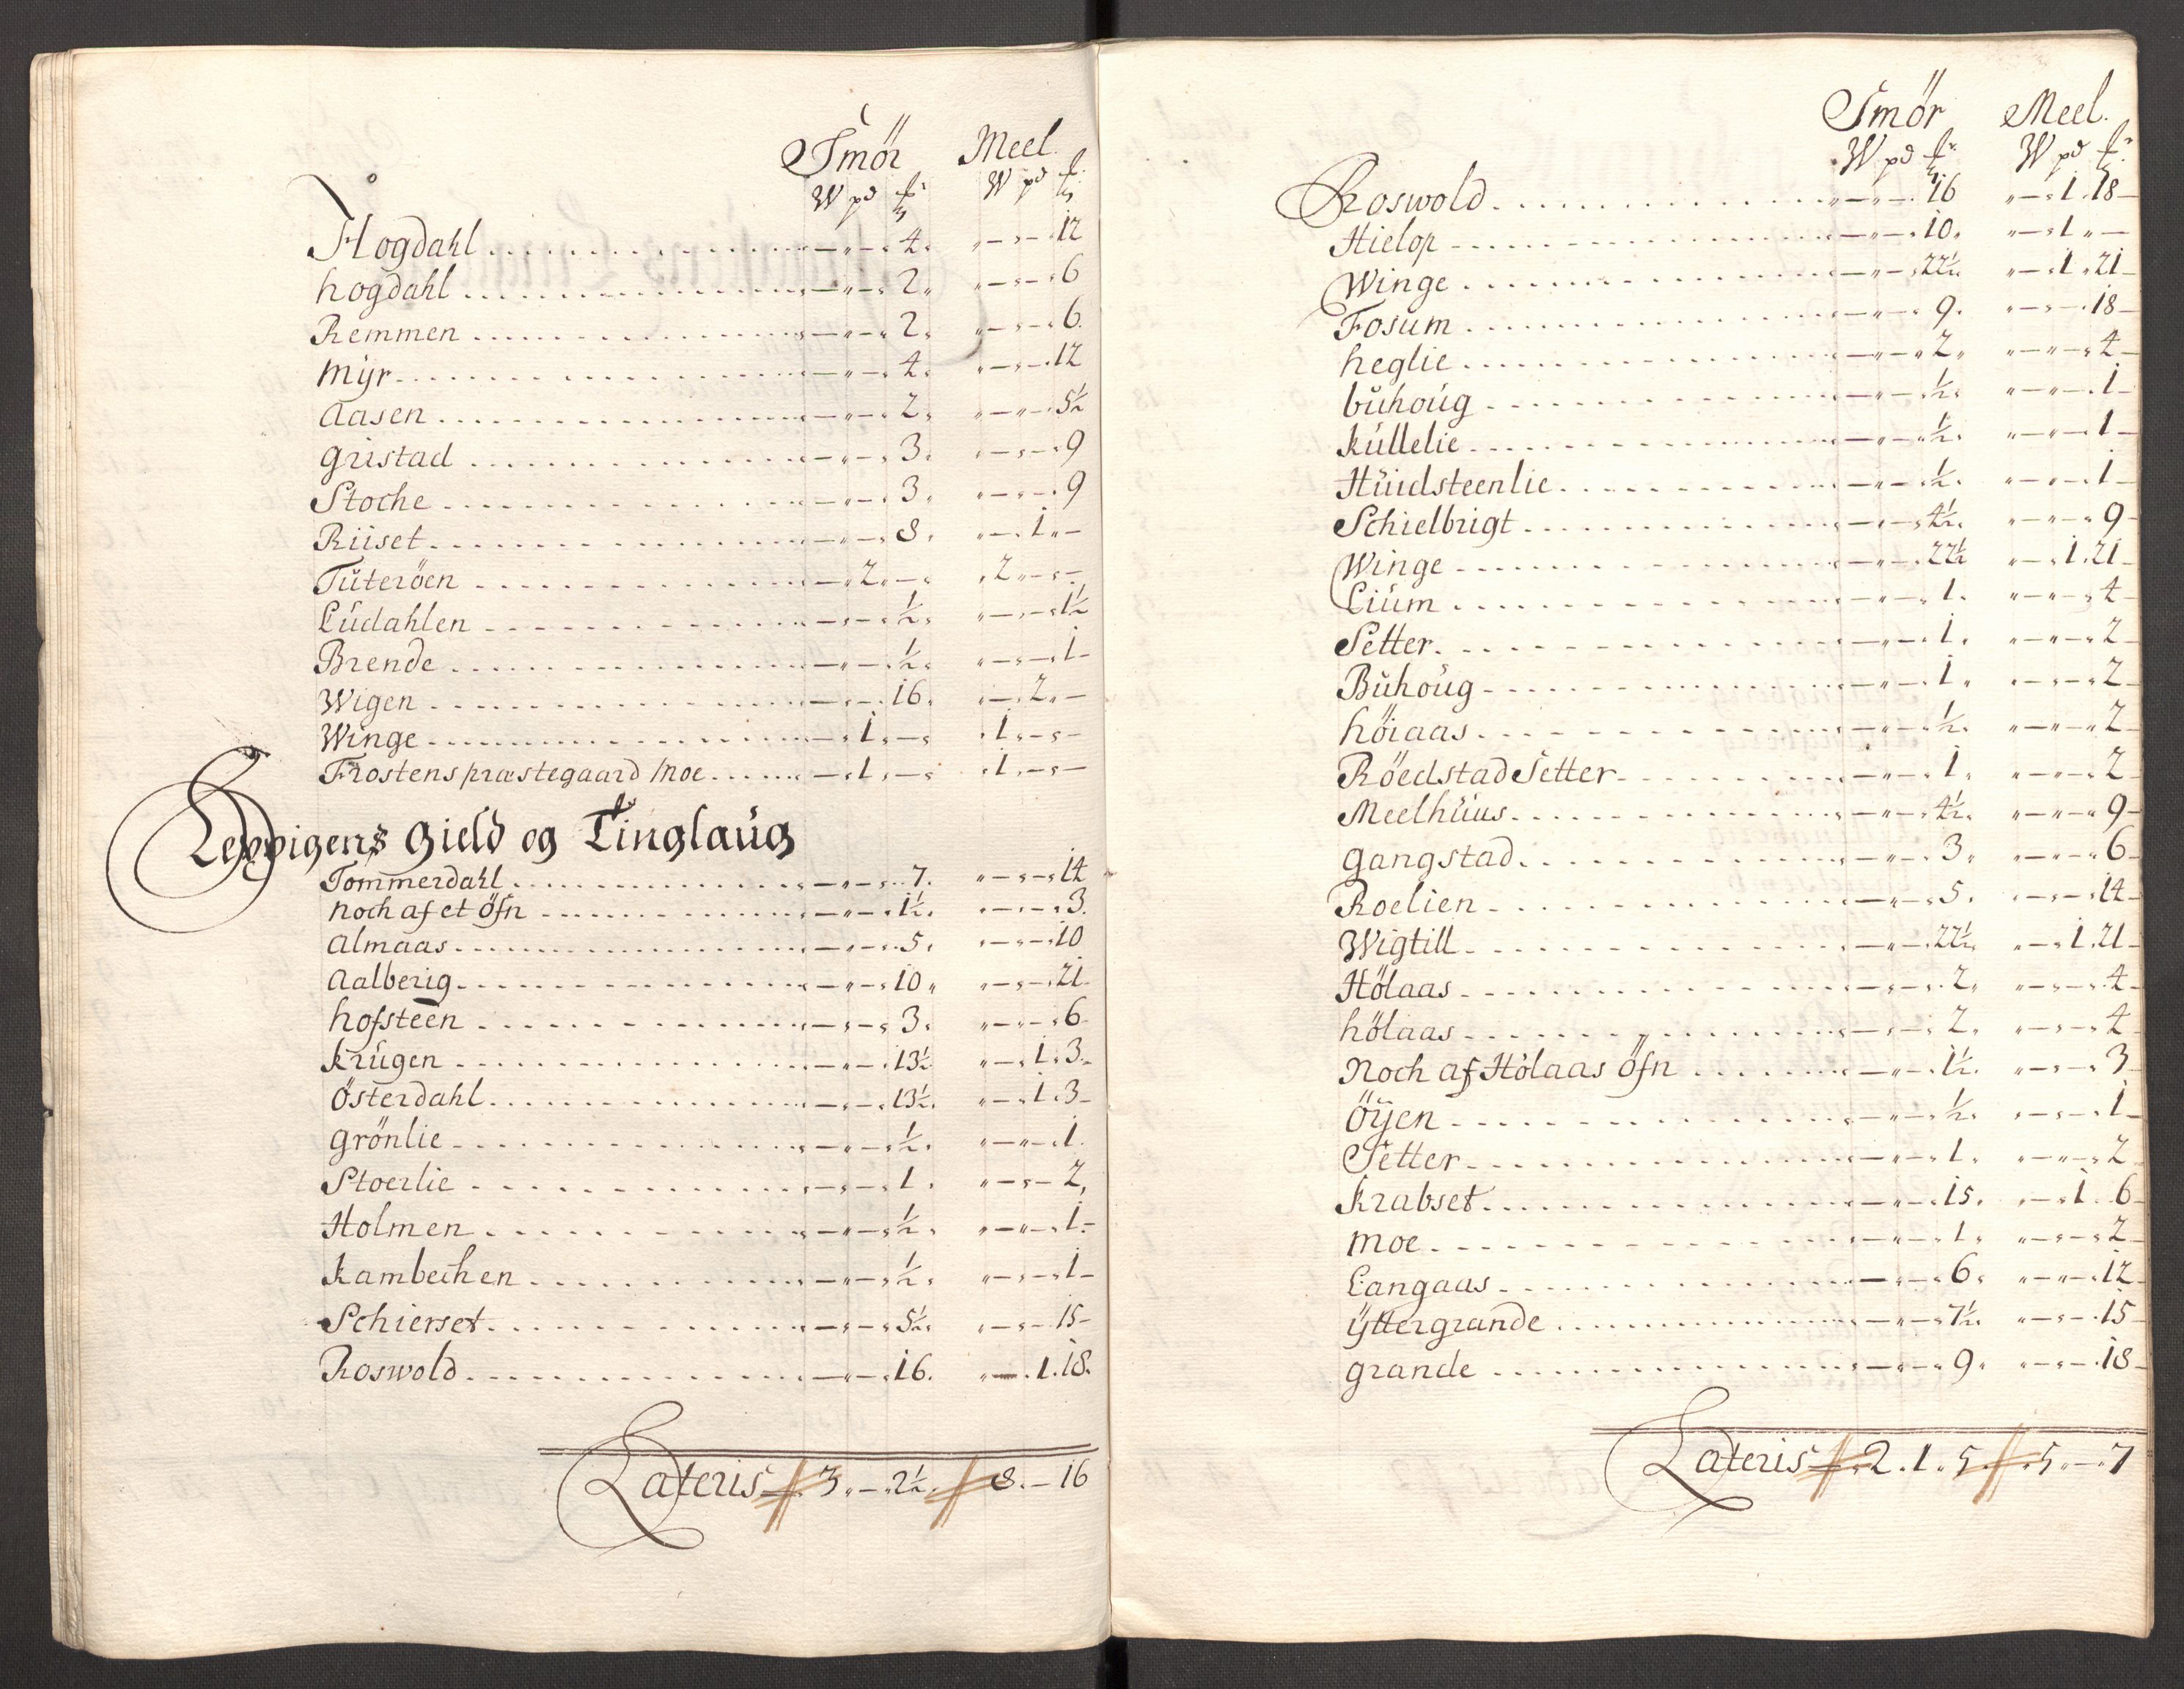 Smör Meel.
W pd ℔ W pd ℔
Hogdahl - " - " - 4. " - " - 12
hogdahl - " - " - 2. " - " - 6
Remmen - " - " - 2. " - " - 6.
Mÿr - " - " - 4. " - " - 12
Aasen - " - " - 2. " - " - 5½
Gristad - " - " - 3. " - " - 9
Stoche - " - " - 3. " - " - 9
Riiset - " - " - 8. " - 1 " -
Tuteröen - " 2 " - " 2 " - " -
Ludahlen - " - " - ½. " - " - 1½
Brende - " - " - ½. " - " - 1 -
Wigen - " - " - 16. " - 2 " -
Winge - " 1 " - " 1 " - " -
Frostens præstegaard Moe - " 1 " - " 1 " - " -
Lexvigens Gield og Tinglaug
Tommerdahl - " - " - 7. " - " - 14
noch af et öfn - " - " - 1½. " - " - 3.
Almaas - " - " - 5. " - " - 10
Aalberig - " - " - 10 " " - " - 21.
hofsteen - " - " - 3. " - " - 6
krugen - " - " - 13½. " - 1. 3.
Österdahl - " - " - 13½. " - 1. 3 -
grönlie - " - " - ½. " - " - 1.
Stoerlie - " - " - 1. " - " - 2,
Holmen - " - " - ½. " - " - 1. -
kambechen - " - " - ½. " - " - 1 -
Schierset - " - " - 5½. " - " - 15 -
Roswold - " - " - 16. " - 1. 18.
Lateris - 3. - 2½. 8. - 16
Smör Meel.
W pd ℔ W pd ℔
Roswold - " - " - 16 " - 1. 18 -
Hielop - " - " - 10. " - 1 " -
Winge - " - " - 22½. " - 1. 21 -
Fosum - " - " - 9. " - " - 18 -
heglie - " - " - 2. " - " - 4 -
buhoug - " - " - ½. " - " - 1 -
kullelie - " - " - ½. " - " - 1 -
Huudsteenlie - " - " - ½. " - " - 1 -
Schielbrigt - " - " - 4½. " - " - 9 -
Winge - " - " - 22½ " - 1. 21 -
Lium - " - " - 1. " - " - 4 -
Setter - " - " - 1. " - " - 2 -
Buhoug - " - " - 1. " - " - 2 -
höiaas - " - " - ½. " - " - 2 -
Röedstad Setter - " - " - 1. " - " - 2 -
Meelhuus - " - " - 4½. " - " - 9 -
gangstad - " - " - 3. " - " - 6 -
Roelien - " - " - 5. " - " - 14 -
Wigtill - " - " - 22½. " - 1. 21 -
Hölaas - " - " - 2. " - " - 4 -
hölaas - " - " - 2. " - " - 4 -
Noch af Hölaas öfn - " - " - 1½. " - " - 3 -
Öÿen - " - " - ½. " - " - 1 -
Setter - " - " - 1. " - " - 2 -
krabset - " - " - 15. " - 1. 6 -
Moe - " - " - 1. " - " - 2 -
Langaas - " - " - 6. " - " - 12 -
ÿttergrande - " - " - 7½. " - " - 15 -
grande - " - " - 9. " - " - 18 -
Lateris - 2. 1. 5. 5. - 7